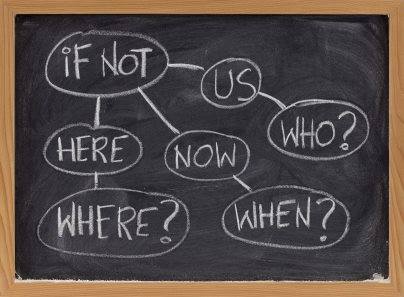 iF NOT
US
WHO?
HERE
NOW
WHERE?
WHEN?